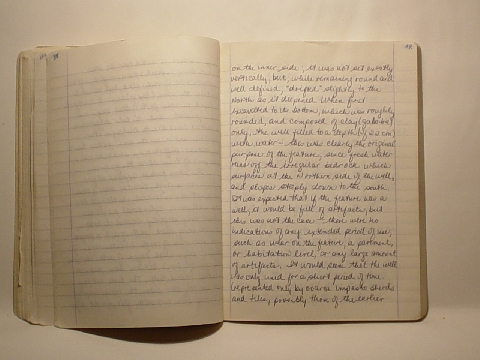 on the inner side; it was not set exactly
vertically, but, while remaining round and
well defined, "dropped" slightly to the
North as it deepened. When first
excavated to its bottom, which was roughly
rounded, and composed of clay
only, the well filled to a depth
with water — this was clearly the original
purpose of the feature, since good water
runs off the irregular bedrock which
surfaces at the Northern side of the well,
and slopes steeply down to the south.
It was expected that if the feature was a
well, it would be full of artifacts, but
this was not the case — there were no
indications of any extended period of use,
such as wear on the feature, a pavement,
or habitation level, or any large amount
of artifacts. It would seem that the well
was only used for a short period of time
represented only by coarse impasto sherds
and tiles, possibly those of the earlier